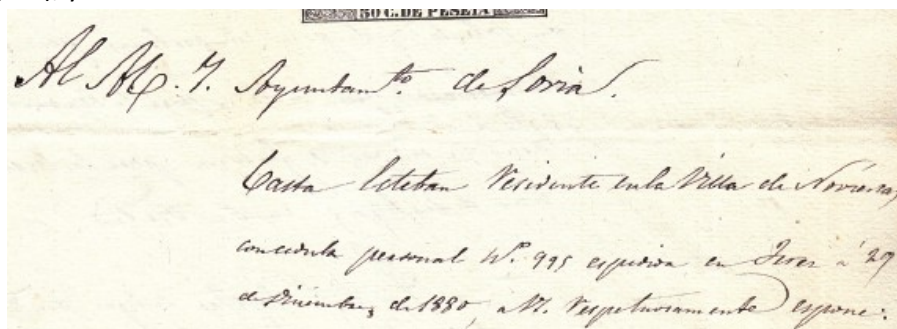 50 C. DE PESETA
Al M. I. Ayuntamto. de Soria.
Casta Esteban Residente en la Villa de Noviercas,
con cedula personal Nº 995 espedida en á 29
de Diciembre, de 1880, a V. I. respetuosamente espone: